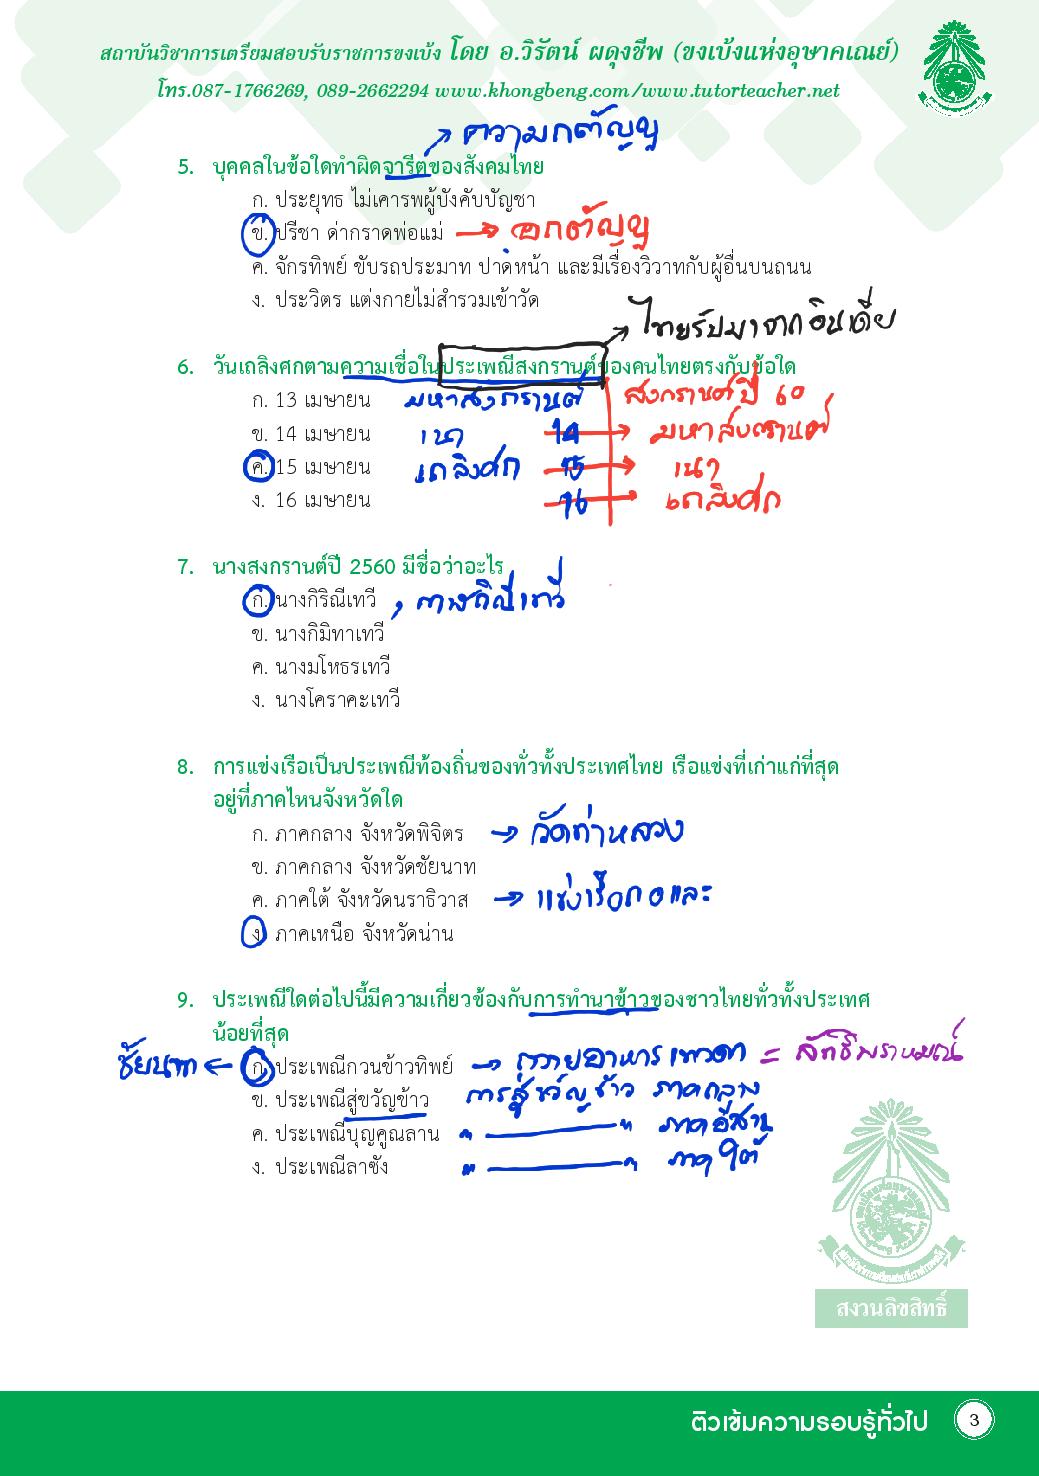 สถาบันวิชาการเตรียมสอบรับราชการขงเบ้ง โดย อ.วิรัตน์ ผดุงชีพ (ขงเบ้งแห่งอุษาคเณย์)
โทร.087-1766269, 089-2662294 www.khongbeng.com/www.tutorteacher.net
ความกตัญญู
5. บุคคลในข้อใดทำผิดจารีตของสังคมไทย
ก. ประยุทธ ไม่เคารพผู้บังคับบัญชา
ข. ปรีชา ด่ากราดพ่อแม่ → อกตัญญู
ค. จักรทิพย์ ขับรถประมาท ปาดหน้า และมีเรื่องวิวาทกับผู้อื่นบนถนน
ง. ประวิตร แต่งกายไม่สำรวมเข้าวัด
ไทยรับมาจากอินเดีย
6. วันเถลิงศกตามความเชื่อในประเพณีสงกรานต์ของคนไทยตรงกับข้อใด
ก. 13 เมษายน มหาสงกรานต์ สงกรานต์ปี 60
ข. 14 เมษายน เนา 14 → มหาสงกรานต์
ค. 15 เมษายน เถลิงศก 15 → เนา
ง. 16 เมษายน 16 → เถลิงศก
7. นางสงกรานต์ปี 2560 มีชื่อว่าอะไร
ก. นางกิริณีเทวี , กาฬกิณีเทวี
ข. นางกิมิทาเทวี
ค. นางมโหธรเทวี
ง. นางโคราคะเทวี
8. การแข่งเรือเป็นประเพณีท้องถิ่นของทั่วทั้งประเทศไทย เรือแข่งที่เก่าแก่ที่สุด
อยู่ที่ภาคไหนจังหวัดใด
ก. ภาคกลาง จังหวัดพิจิตร → วัดท่าหลวง
ข. ภาคกลาง จังหวัดชัยนาท
ค. ภาคใต้ จังหวัดนราธิวาส → แข่งเรือกอและ
ง. ภาคเหนือ จังหวัดน่าน
9. ประเพณีใดต่อไปนี้มีความเกี่ยวข้องกับการทำนาข้าวของชาวไทยทั่วทั้งประเทศ
น้อยที่สุด
ชัยนาท ← ก. ประเพณีกวนข้าวทิพย์ → ถวายอาหารเทวดา = ลัทธิพราหมณ์
ข. ประเพณีสู่ขวัญข้าว การสู่ขวัญข้าว ภาคกลาง
ค. ประเพณีบุญคูณลาน " — " ภาคอีสาน
ง. ประเพณีลาซัง " — " ภาคใต้
สงวนลิขสิทธิ์
ติวเข้มความรอบรู้ทั่วไป 3